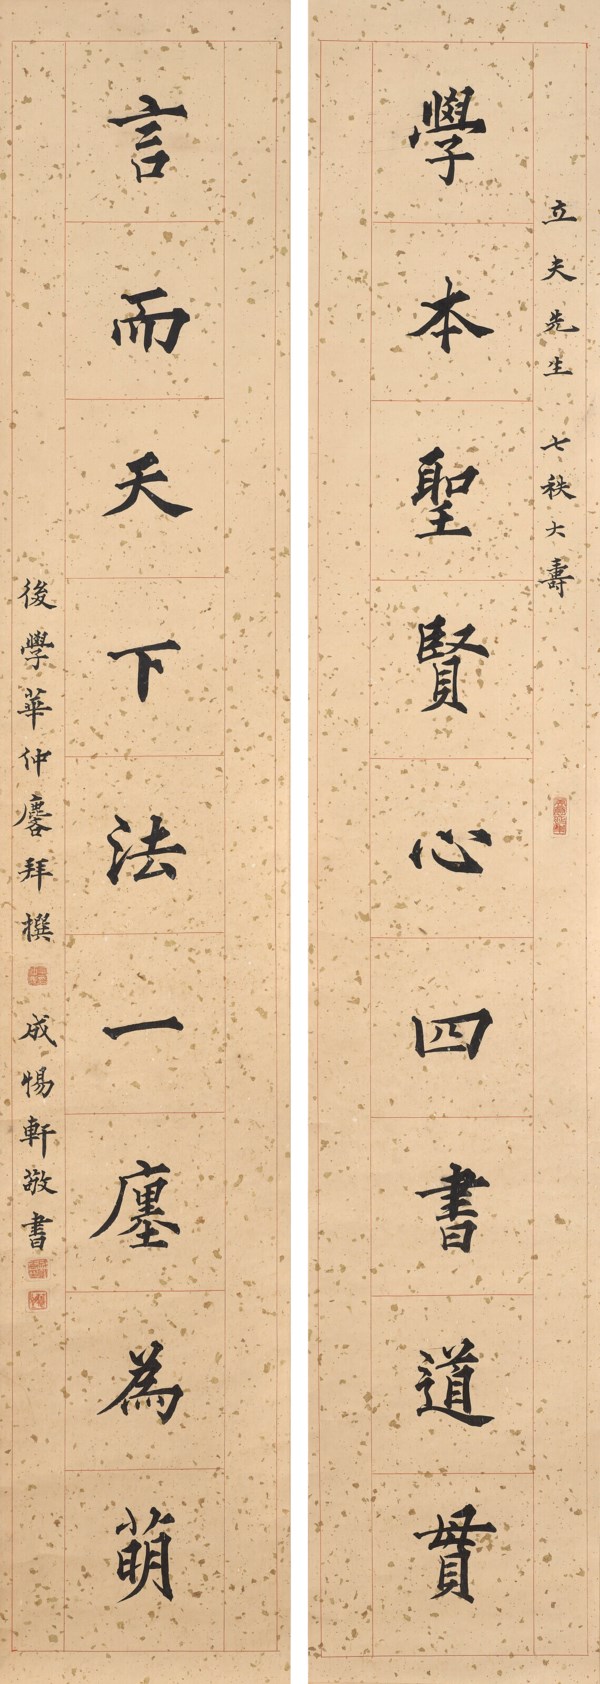 立夫先生 七秩大壽
學本聖賢心四書道貫
言而天下法一廛為萌
後學華仲麐拜撰 成惕軒敬書